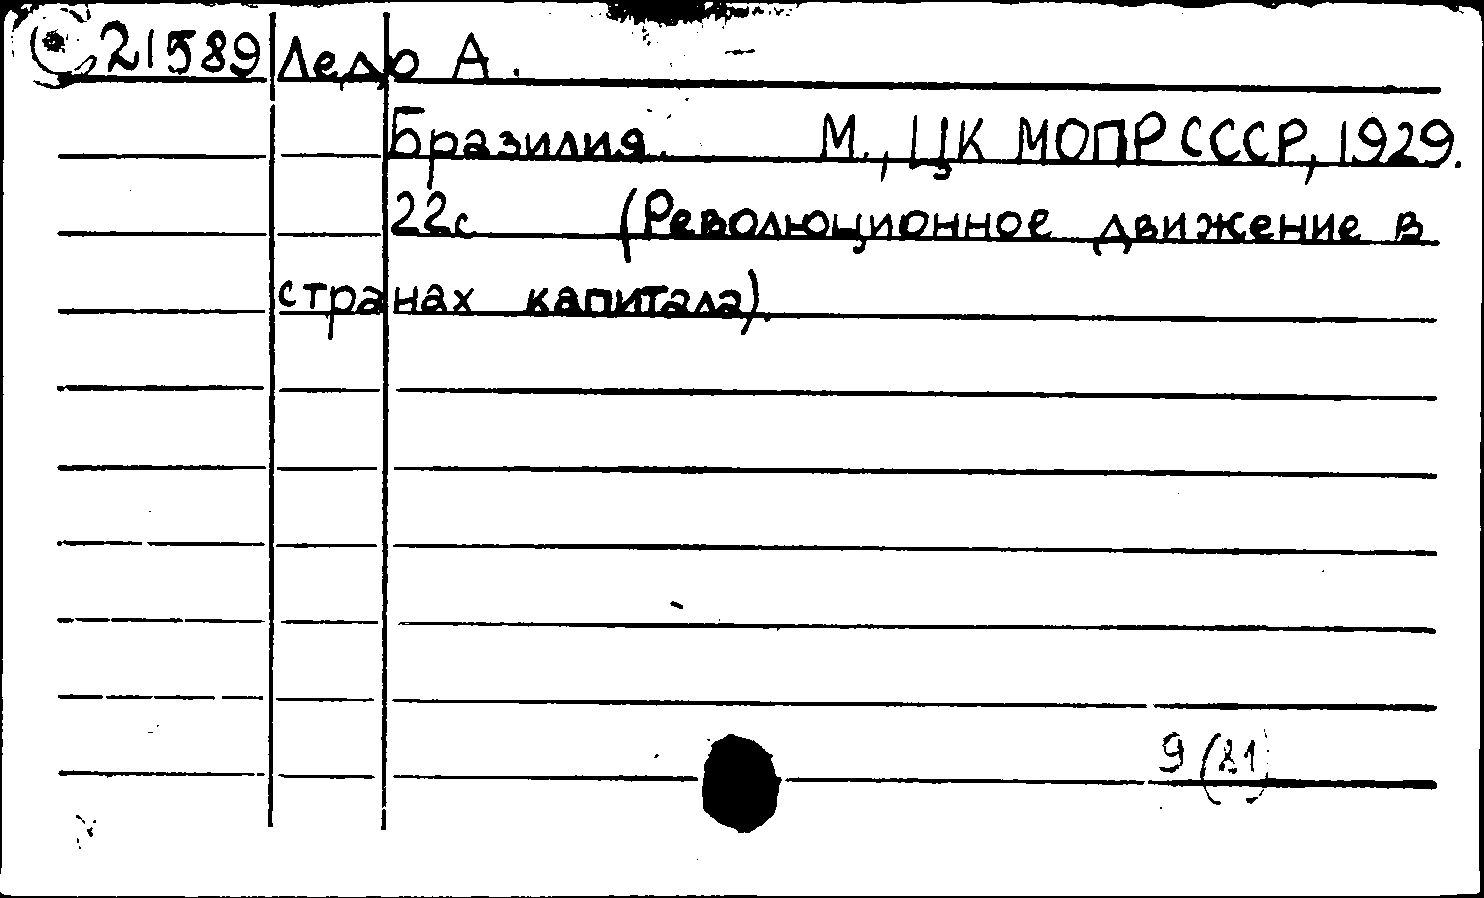 21589 Ледо А.
Бразилия. М., ЦК МОПР СССР, 1929.
22с (Революционное движение в
странах капитала).
9(81)